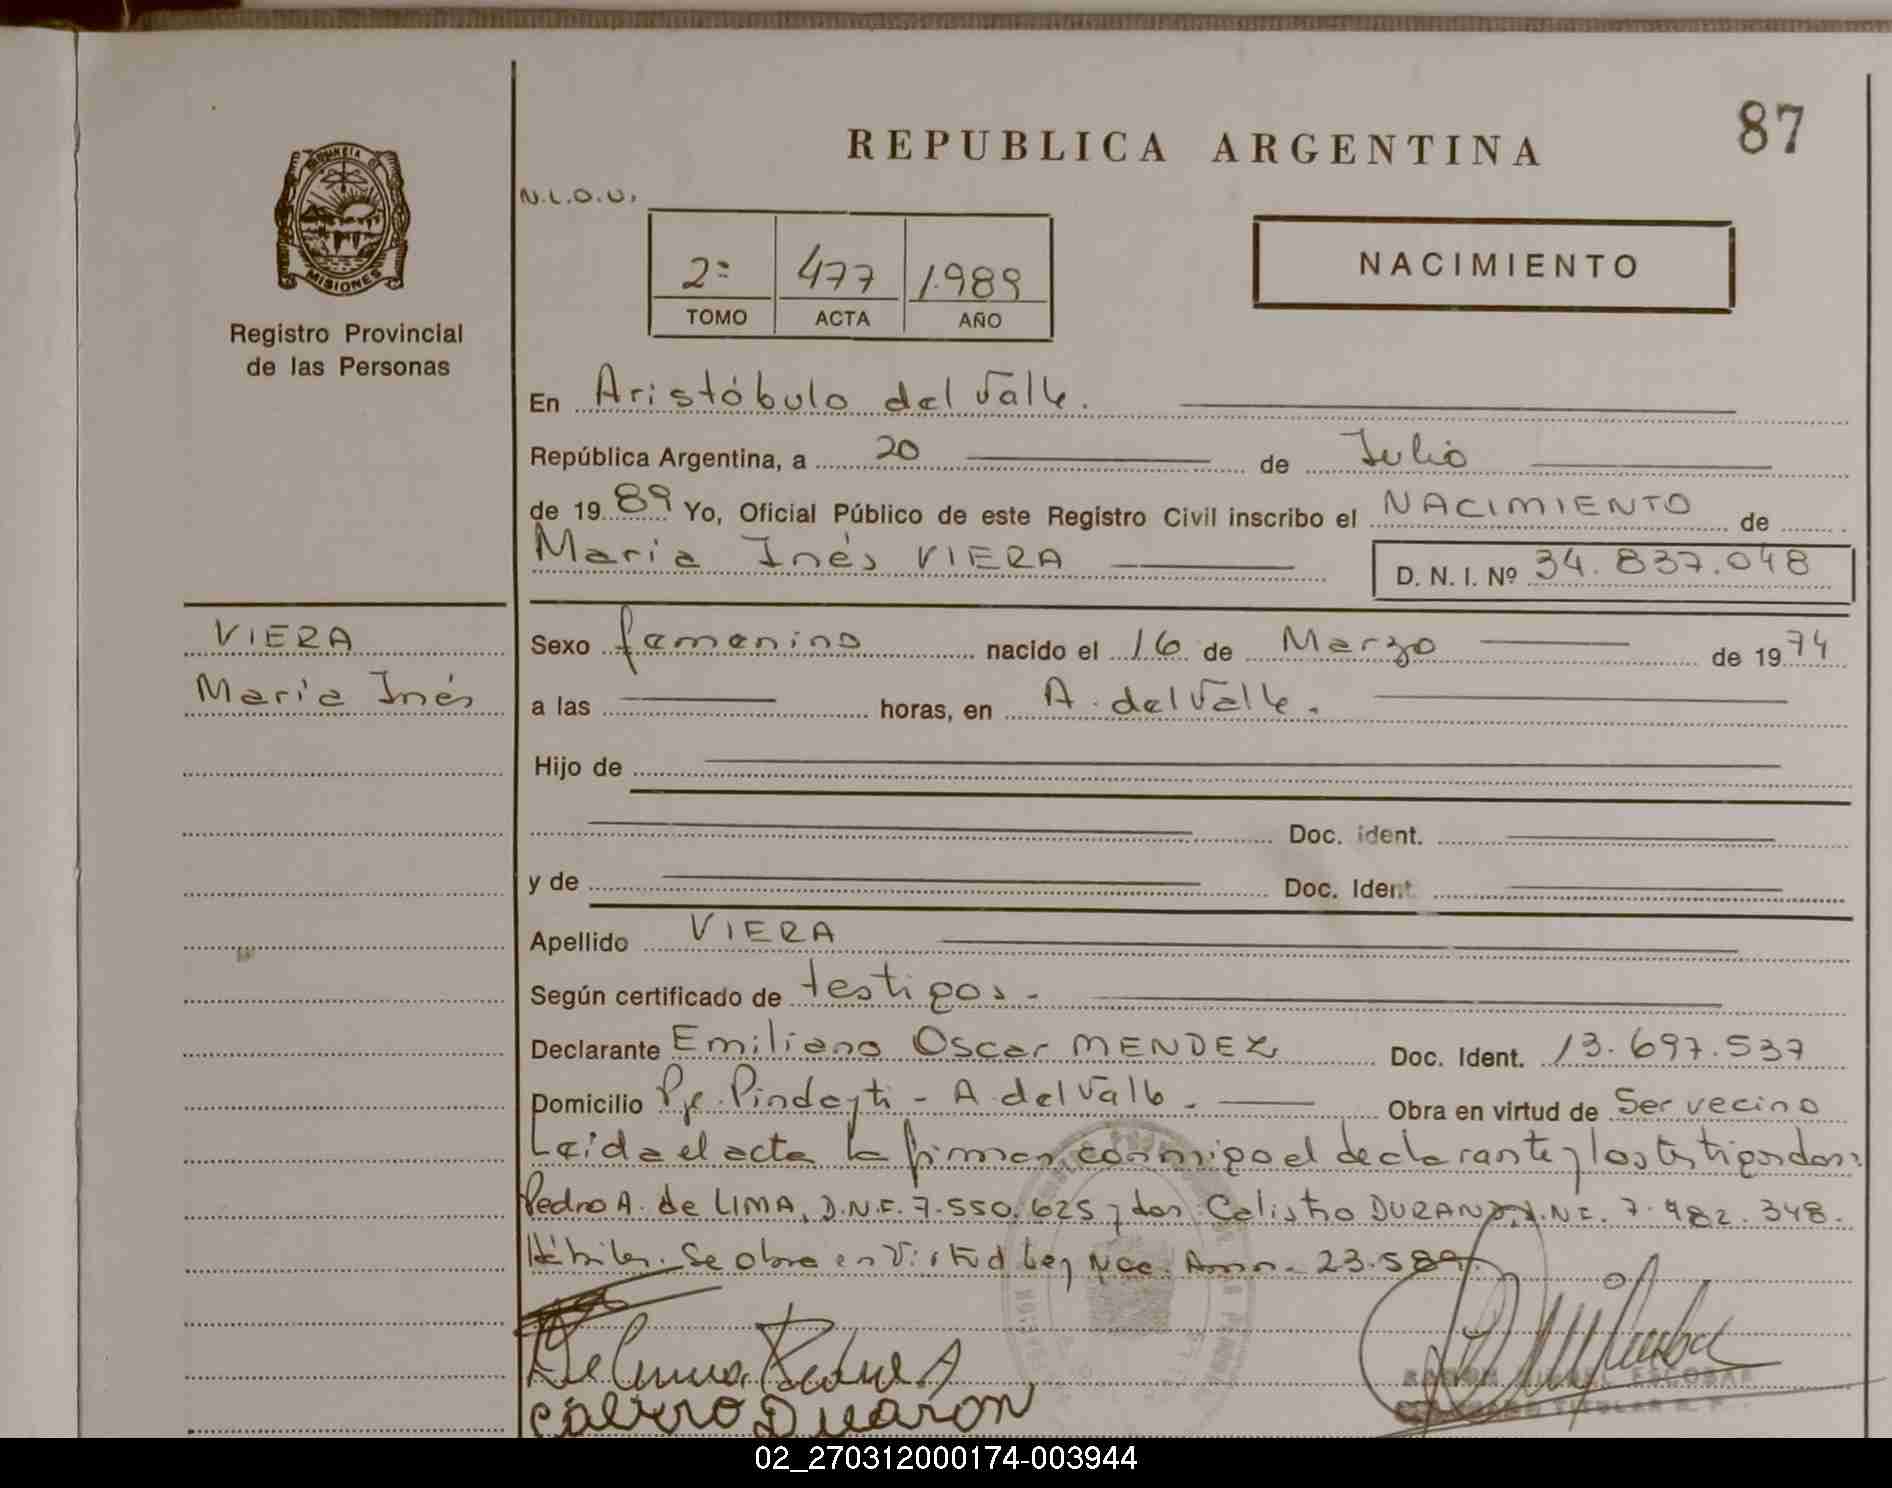 87
REPUBLICA ARGENTINA
PROVINCIA
MISIONES
Registro Provincial
de las Personas
N.L.O.U.
2ª 477 1.989
TOMO ACTA AÑO
NACIMIENTO
En Aristóbulo del Valle.
República Argentina, a 20 de Julio
de 1989 Yo, Oficial Público de este Registro Civil inscribo el NACIMIENTO de
María Inés VIERA D. N. I. Nº 34.837.048
VIERA
María Inés
Sexo femenino nacido el 16 de Marzo de 1974
a las horas, en A. del Valle.
Hijo de
Doc. ident.
y de Doc. Ident
Apellido VIERA
Según certificado de testigos.-
Declarante Emiliano Oscar MENDEZ Doc. Ident. 13.697.537
Domicilio Pje. Pindayti - A. del Valle. Obra en virtud de Ser vecino
Leída el acta la firman conmigo el declarante y los testigos don:
Pedro A. de LIMA, D.N.I. 7.550.625 y don Calistro DURAN, D.N.I. 7.482.348.
Hábiles. Se obra en Virtud Ley Nac. Amn. 23.589.
De Lima Pedro A
DUARON
RAMON MIGUEL ESCOBAR
02_270312000174-003944